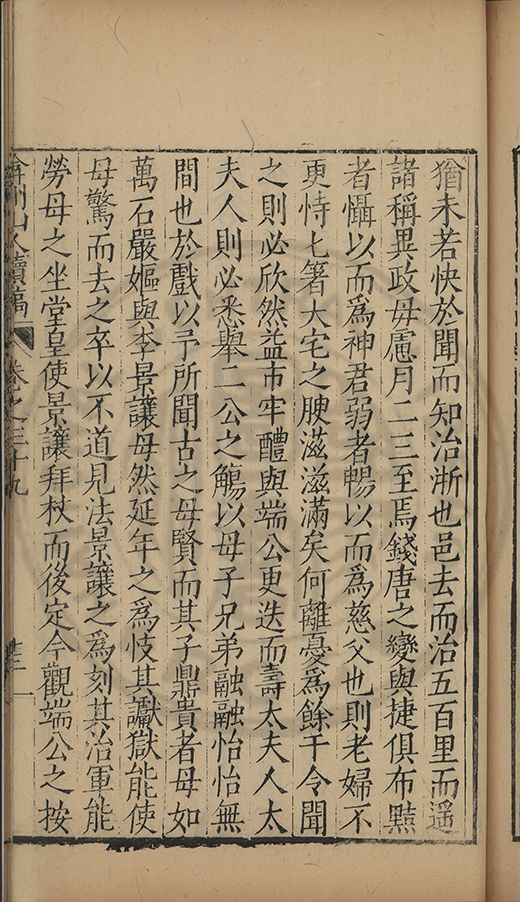 猶未若快於聞而知治浙也邑去而治五百里而遥
諸稱異政毋慮月二三至焉錢唐之變與捷俱布黠
者懾以而為神君弱者暢以而為慈父也則老婦不
更恃匕箸大宅之腴滋滋滿矣何離憂為餘干令聞
之則必欣然益市牢醴與端公更迭而壽太夫人太
夫人則必悉舉二公之觴以母子兄弟融融怡怡無
間也於戲以予所聞古之母賢而其子鼎貴者毋如
萬石嚴嫗與李景讓母然延年之為忮其讞獄能使
母驚而去之卒以不道見法景讓之為刻其治軍能
勞母之坐堂皇使景讓拜杖而後定今觀端公之按
弇州山人續稿 卷之三十九